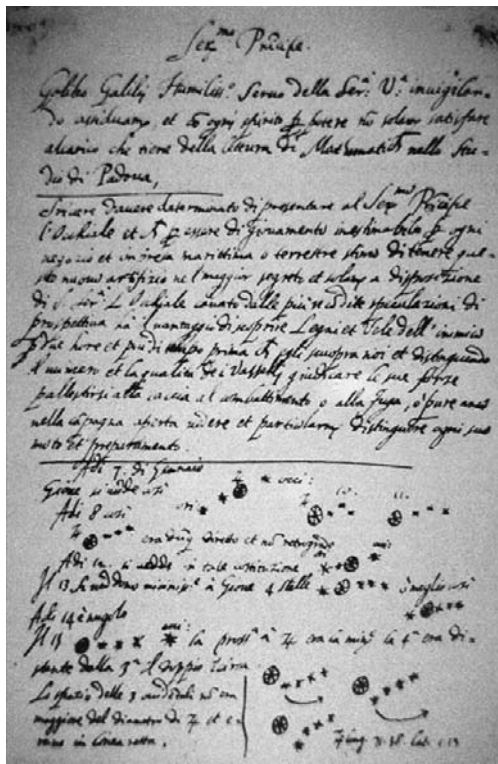 Ser.mo Principe.
Galileo Galilei Humiliss.o Servo della Ser.a V.a invigilan-
do assiduam.te, et con ogni spirito p potere nõ solam satisfare
alcarico che tiene della lettura di Mathematich nello Stu-
dio di Padova,
Scrivere davere determinato di presentare al Ser.mo Principe
l'Occhiale et p essere di giovamento inestimabile p ogni
negozio et impresa marittima o terrestre stimo di tenere que-
sto nuovo artifizio nel maggior segreto et solam a disposizione
di S. Ser.a L'Occhiale cavato dalle più recondite speculazioni di
prospettiva ha vantaggio di scoprire Legni et Vele dell'inimico
p due hore et più di tempo prima ch egli scuopra noi et distinguendo
il numero et la qualità de i Vasselli giudicare le sue forze
pallestirsi alla caccia al combattimento o alla fuga, o pure anco
nella capagna aperta vedere et particolarm distinguere ogni suo
moto et preparamento.
Adi 7. di Gennaio
Giove si vede così
Adi 8 così
era dirette et nõ retrogrado
Adi 12. si vedde in tale costituzione
Il 13 si veddono à Giove 4 stelle meglio così
Adi 14 è nugolo
Il 15 la pross.a à 4 era la min.e la 4.a era di-
stante dalla 3.a il doppio
Lo spazio delle 3 occidentali nõ era
maggiore del diametro di 4 et e-
rano in linea retta.